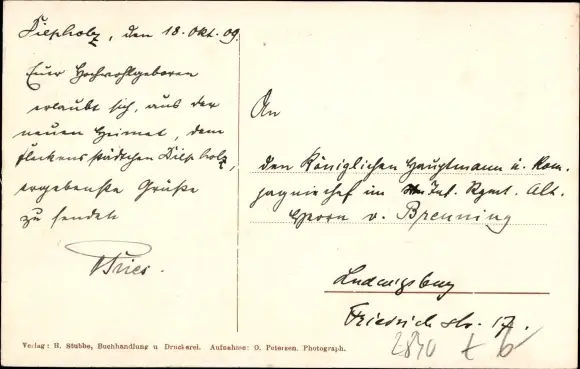 Diepholz, den 18. Okt. 09.
Euer Hochwohlgeboren
erlaubt sich, aus der
neuen Heimat, dem
Fleckenstädtchen Diepholz,
ergebenste Grüße
zu senden
Fries.
An
den Königlichen Hauptmann u. Kom-
pagniechef im Inf. Rgmt. Alt.
Herrn v. Brenning
Ludwigsburg
Friedrich str. 17.
Verlag: H. Stubbe, Buchhandlung u Druckerei. Aufnahme: O. Petersen. Photograph.
2840 t b